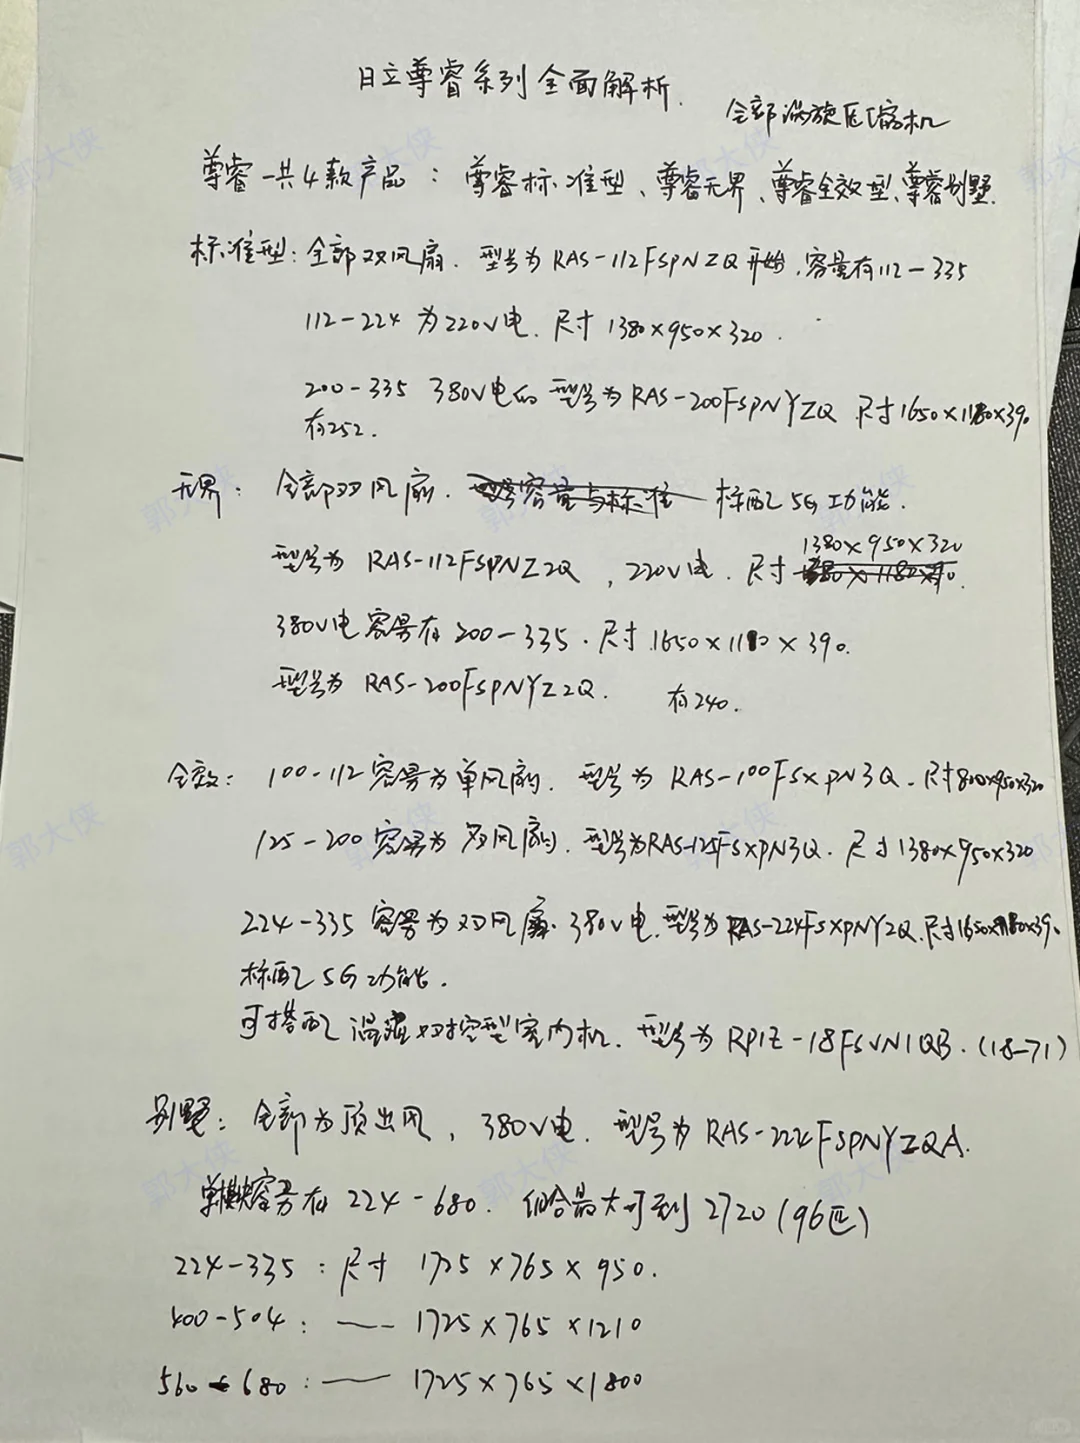 日立尊睿系列全面解析.
全部涡旋压缩机
尊睿一共4款产品：尊睿标准型、尊睿无界、尊睿全效型、尊睿别墅.
标准型：全部双风扇. 型号为RAS-112FSPNZQ开始，容量有112-335
112-224 为220V电. 尺寸 1380×950×320.
200-335 380V电的 型号为RAS-200FSPNYZQ 尺寸1650×1180×390
有252.
无界：全部双风扇. 标配5G功能.
1380×950×320
型号为 RAS-112FSPNZ2Q ，220V电. 尺寸
380V电容量有200-335. 尺寸1650×1180×390.
型号为 RAS-200FSPNYZ2Q. 有240.
全效：100-112容量为单风扇. 型号为 RAS-100FSXPN3Q. 尺寸800×950×320
125-200容量为双风扇. 型号为RAS-125FSXPN3Q. 尺寸1380×950×320
224-335 容量为双风扇. 380V电. 型号为RAS-224FSXPNY2Q. 尺寸1650×1180×390
标配5G功能.
可搭配温湿双控型室内机. 型号为 RPIZ-18FSVN1QB. (18-71)
别墅：全部为顶出风，380V电. 型号为RAS-224FSPNYZQA.
单模块容量有224-680. 组合最大可到2720(96匹)
224-335：尺寸 1725×765×950.
400-504：—— 1725×765×1210
560-680：—— 1725×765×1800
郭大侠
郭大侠
郭大侠
郭大侠
郭大侠
郭大侠
郭大侠
郭大侠
郭大侠
郭大侠
郭大侠
郭大侠